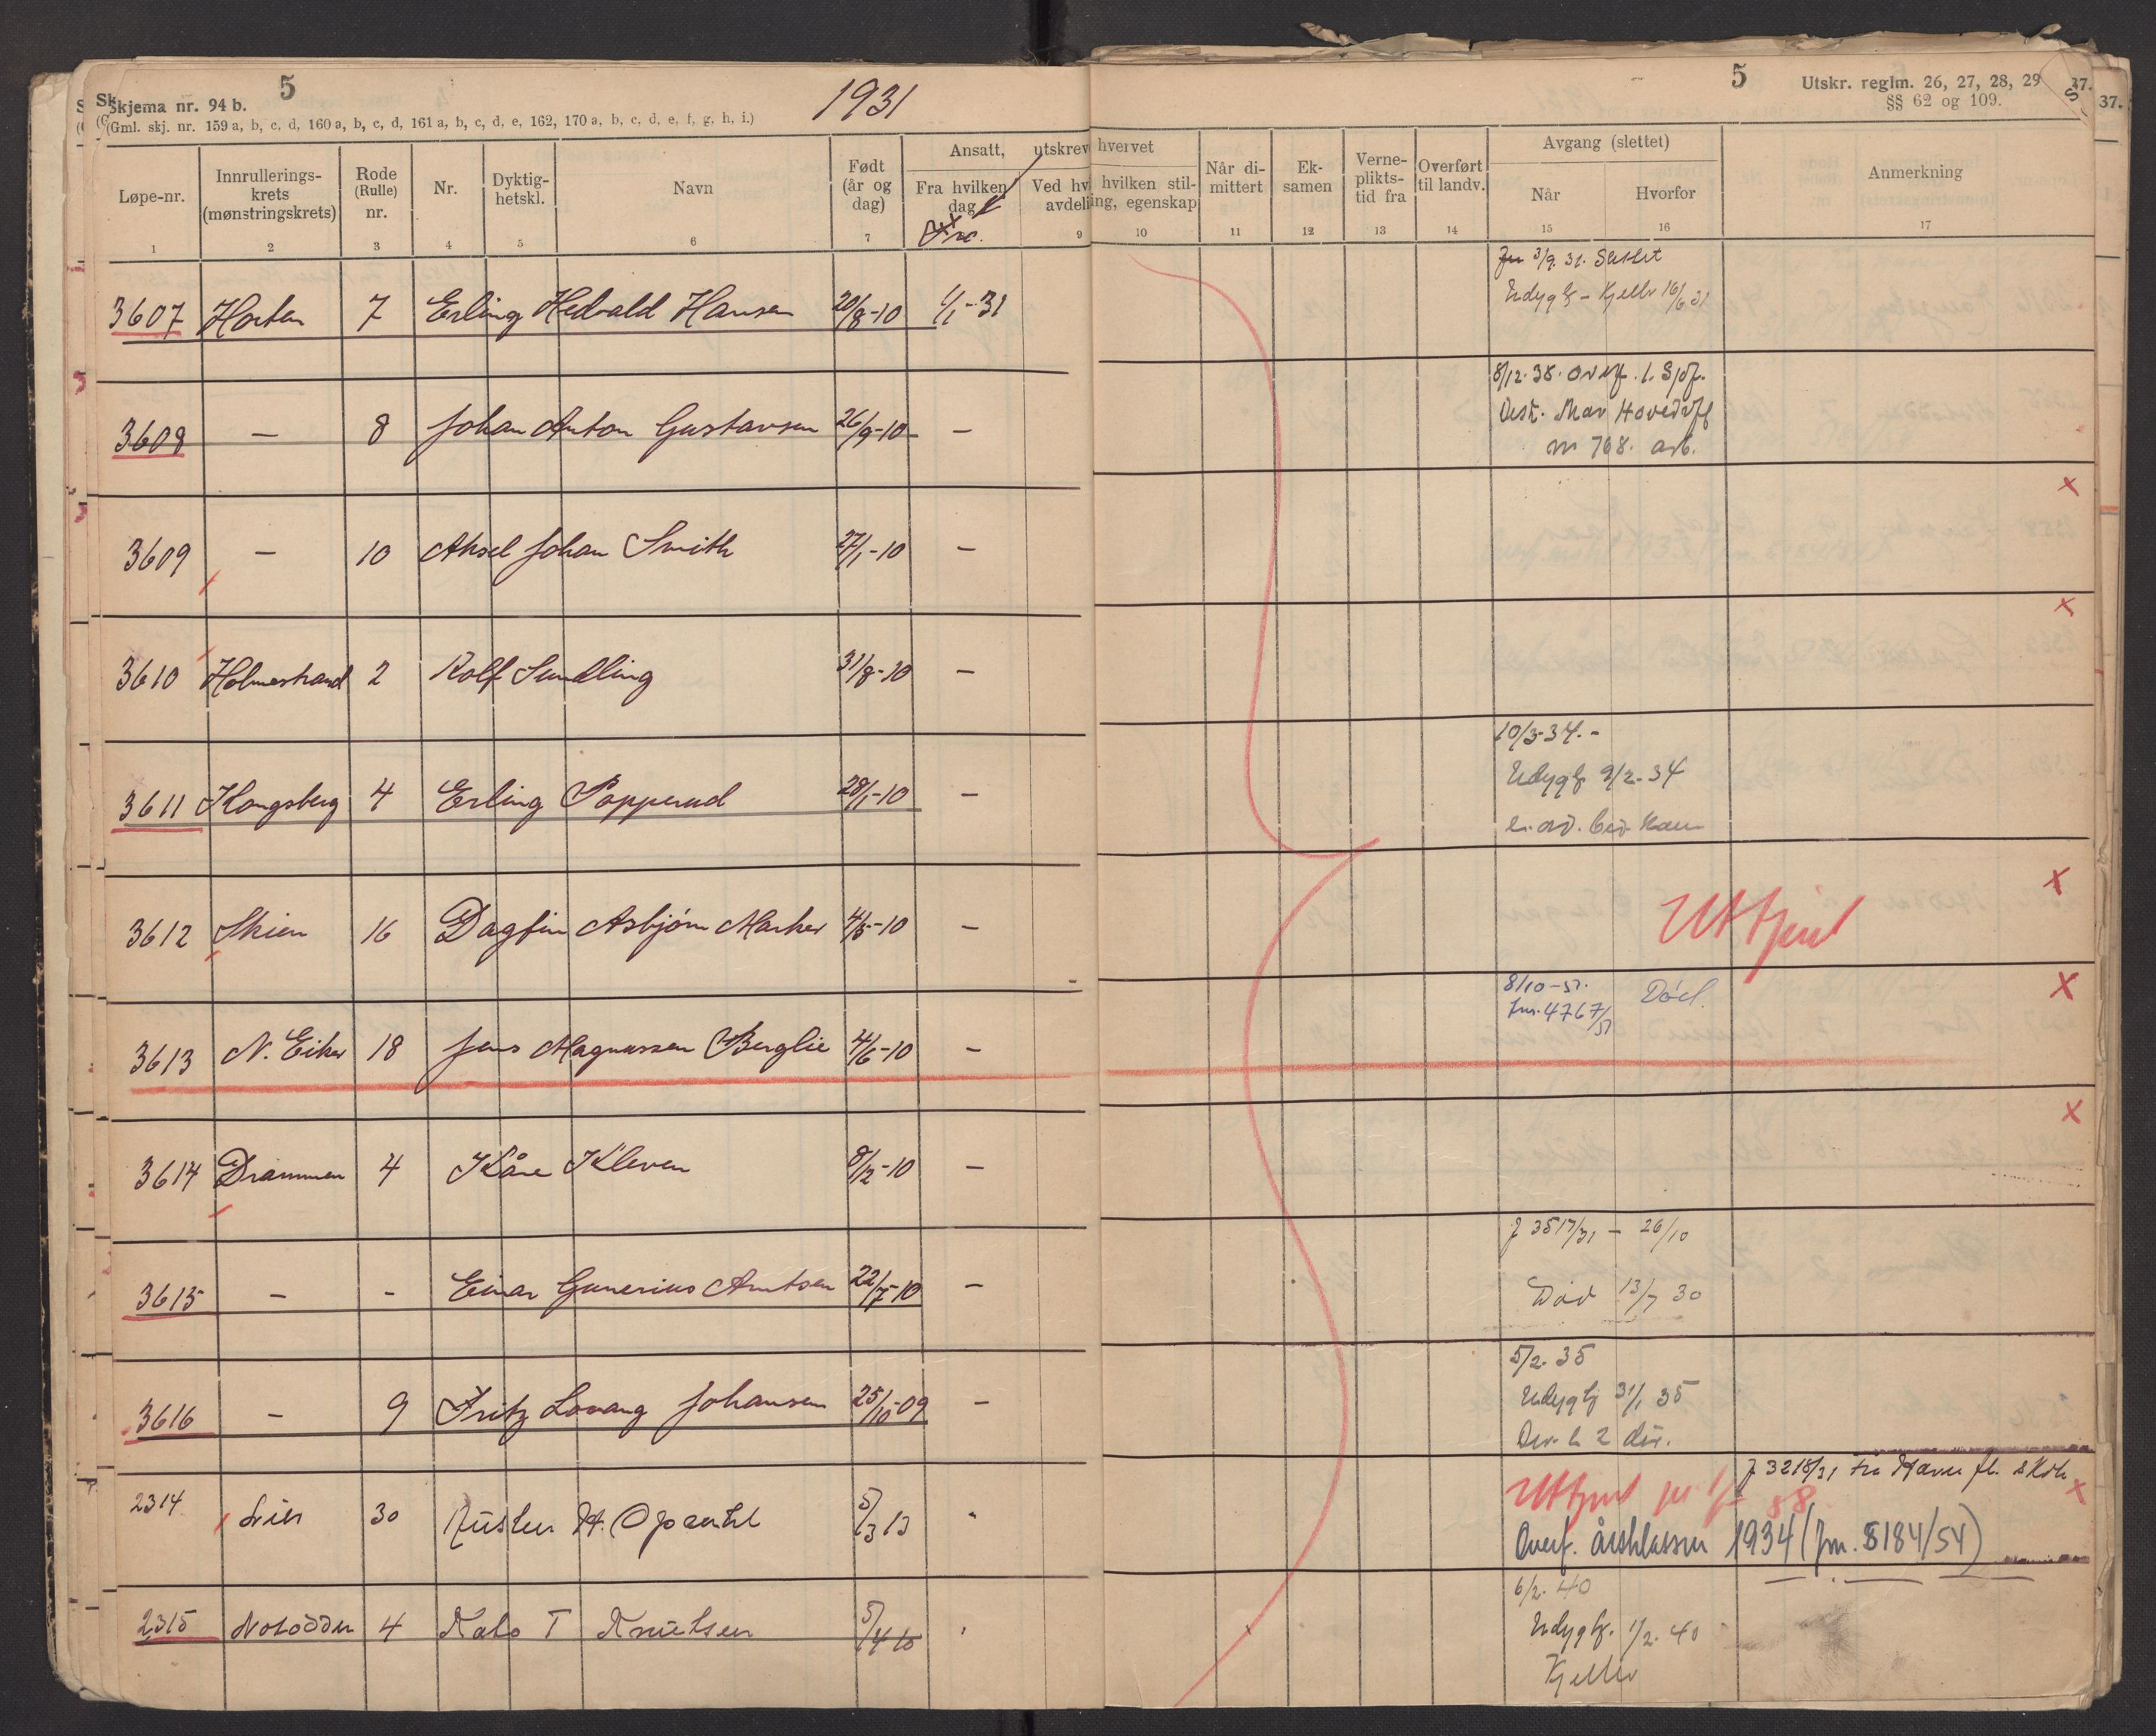 5
1931
Skjema nr. 94 b.
(Gml. skj. nr. 159 a, b, c, d, 160 a, b, c, d, 161 a, b, c, d, e, 162, 170 a, b, c, d, e, f, g, h, i.)
5
Utskr. reglm. 26, 27, 28, 29
37.
37.
§§ 62 og 109.
Løpe-nr.
Innrullerings-
krets
(mønstringskrets)
Rode
(Rulle)
nr.
Nr.
Dyktig-
hetskl.
Navn
Født
(år og
dag)
Ansatt, utskrev
hvervet
Fra hvilken
dag
Ved hv
avdeli
hvilken stil-
ing, egenskap
Når di-
mittert
Ek-
samen
Verne-
plikts-
tid fra
Overført
til landv.
Avgang (slettet)
Når
Hvorfor
Anmerkning
1 2 3 4 5 6 7 9 10 11 12 13 14 15 16 17
3607 Horten 7 Erling Hedvald Hansen 20/8-10 1/1-31
3/9. 31. Slettet
Udygtg - Kjeller 16/6 31
3608 — 8 Johan Anton Gustavsen 26/9-10 —
8/12-38. Overf. t. Sjøf.
Vest. Mar Hoved
768. arb.
3609 — 10 Aksel Johan Smith 27/1-10 —
x
3610 Holmestrand 2 Rolf Sundling 31/8-10 —
x
3611 Kongsberg 4 Erling Popperud 28/1-10 —
10/3-34.-
Udygtg 9/2-34
3612 Skien 16 Dagfin Asbjørn Marker 4/5-10 —
Uttjent
x
3613 N. Eiker 18 Jens Magnussen Berglie 4/6-10 —
8/10-57. Død.
Jnr. 4767/57
x
3614 Drammen 4 Kåre Kleven 8/12-10 —
x
3615 - - Einar Gunerius Arntsen 22/7-10 —
J 3517/31 - 26/10
Død 13/7 30
3616 - 9 Fritz Lovang Johansen 25/10-09 —
5/2. 35
Udygtg 31/1 35
2 div.
2314 Lier 30 H. Opsahl 5/3 13
J 3218/31 fra Marin fl. skole
Uttjent
58
x
Overf. årsklassen 1934 (Jnr. 8184/54)
2315 Notodden 4 Kato T Knutsen 5/4 10
6/2. 40
Udygtg. 1/2. 40
Kjeller